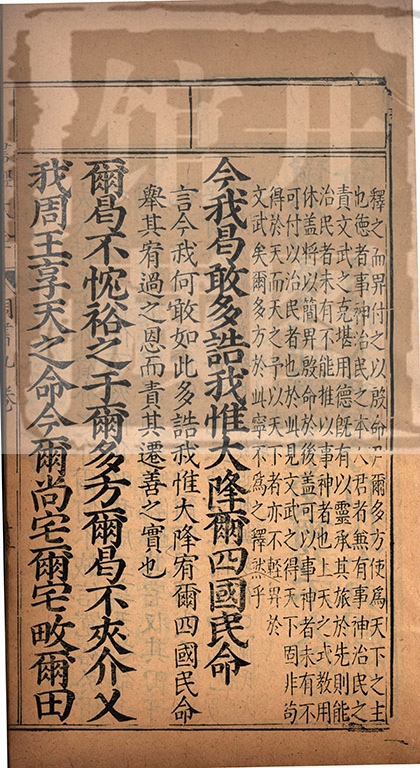 釋之而畀付之以殷命尹爾多方使為天下之主
也德者事神治民之本人君者無有事神治民之
責文武之克堪用德旣有以靈承其旅於先則能
治民者未有不能推以事神者也上天之式教用
休盖將以簡畀殷命於後盖可以事神者未有不
可付以治民者也於此見文武之得天下固非苟
得於天而天之予以天下者亦不輕畀於
文武矣爾多方於此寧不為之釋然乎
今我曷敢多誥我惟大降爾四國民命
言今我何敢如此多誥我惟大降宥爾四國民命
舉其宥過之恩而責其遷善之實也
爾曷不忱裕之于爾多方爾曷不夾介乂
我周王享天之命今爾尚宅爾宅畋爾田